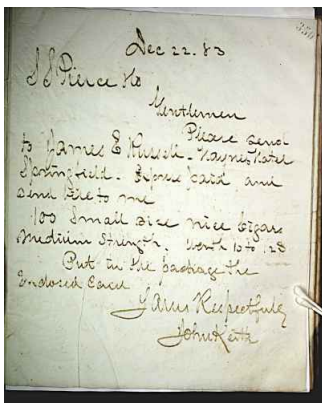 Dec 22. 83
S S Pierce &Co
Gentlemen
Please send
to James E Russell - Haynes Hotel
Springfield - Express paid and
send bill to me
100 Small size nice cigars
Medium Strength - Worth 10 to 12$
Put in the package the
Enclosed Card
Yours Respectfully
John Keith